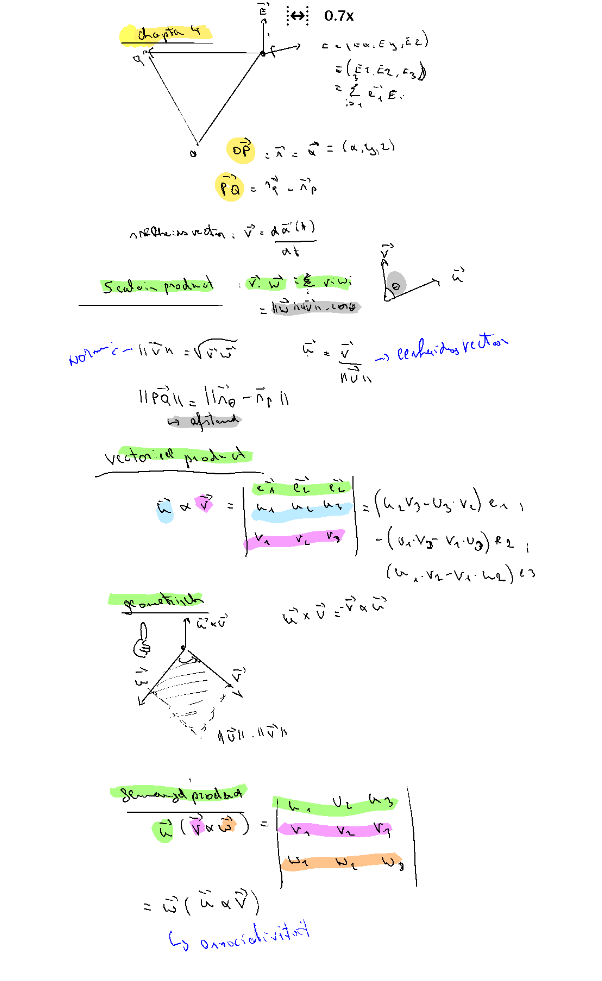 0.7x
chapter 4
= (Ex, Ey, Ez)
= (E1, E2, E3)
= Σ e⃗i Ei
OP⃗ = r⃗ = x⃗ = (x, y, z)
PQ⃗ = r⃗q - r⃗p
vector: v⃗ = dx⃗(t)/dt
Scalair product : v⃗ · w⃗ = Σ vi wi
= ||w⃗|| ||v⃗|| · cos θ
v⃗ θ u⃗
norm ||v⃗|| = √v⃗ w⃗ u⃗ = v⃗/||v⃗|| → eenheidsvector
||PQ⃗|| = ||r⃗Q - r⃗p||
↳ afstand
Vectorieel product
e⃗1 e⃗2 e⃗2
u⃗ ∝ v⃗ = | u1 u2 u3 | = (u2 v3 - u3 · v2) e1,
v1 v2 v3 -(v1 · v3 - v1 · u3) e2,
(u1 · v2 - v1 · u2) e3
geometrisch
u⃗ × v⃗ = -v⃗ ∝ u⃗
u⃗ ∝ v⃗
v⃗
||u⃗|| · ||v⃗||
gemengd product
u1 U2 u3
u⃗ (v⃗ ∝ w⃗) = | v1 v2 v3 |
w1 w2 w3
= w⃗ (u⃗ ∝ v⃗)
↳ associativiteit